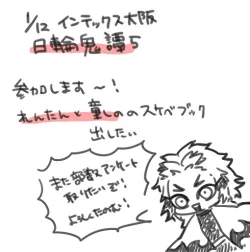 1/12 インテックス大阪
日輪鬼譚5
参加します〜!
れんたんと童しののスケベブック
出したい
また部数アンケート
取りたいで!
よろしたのむ!